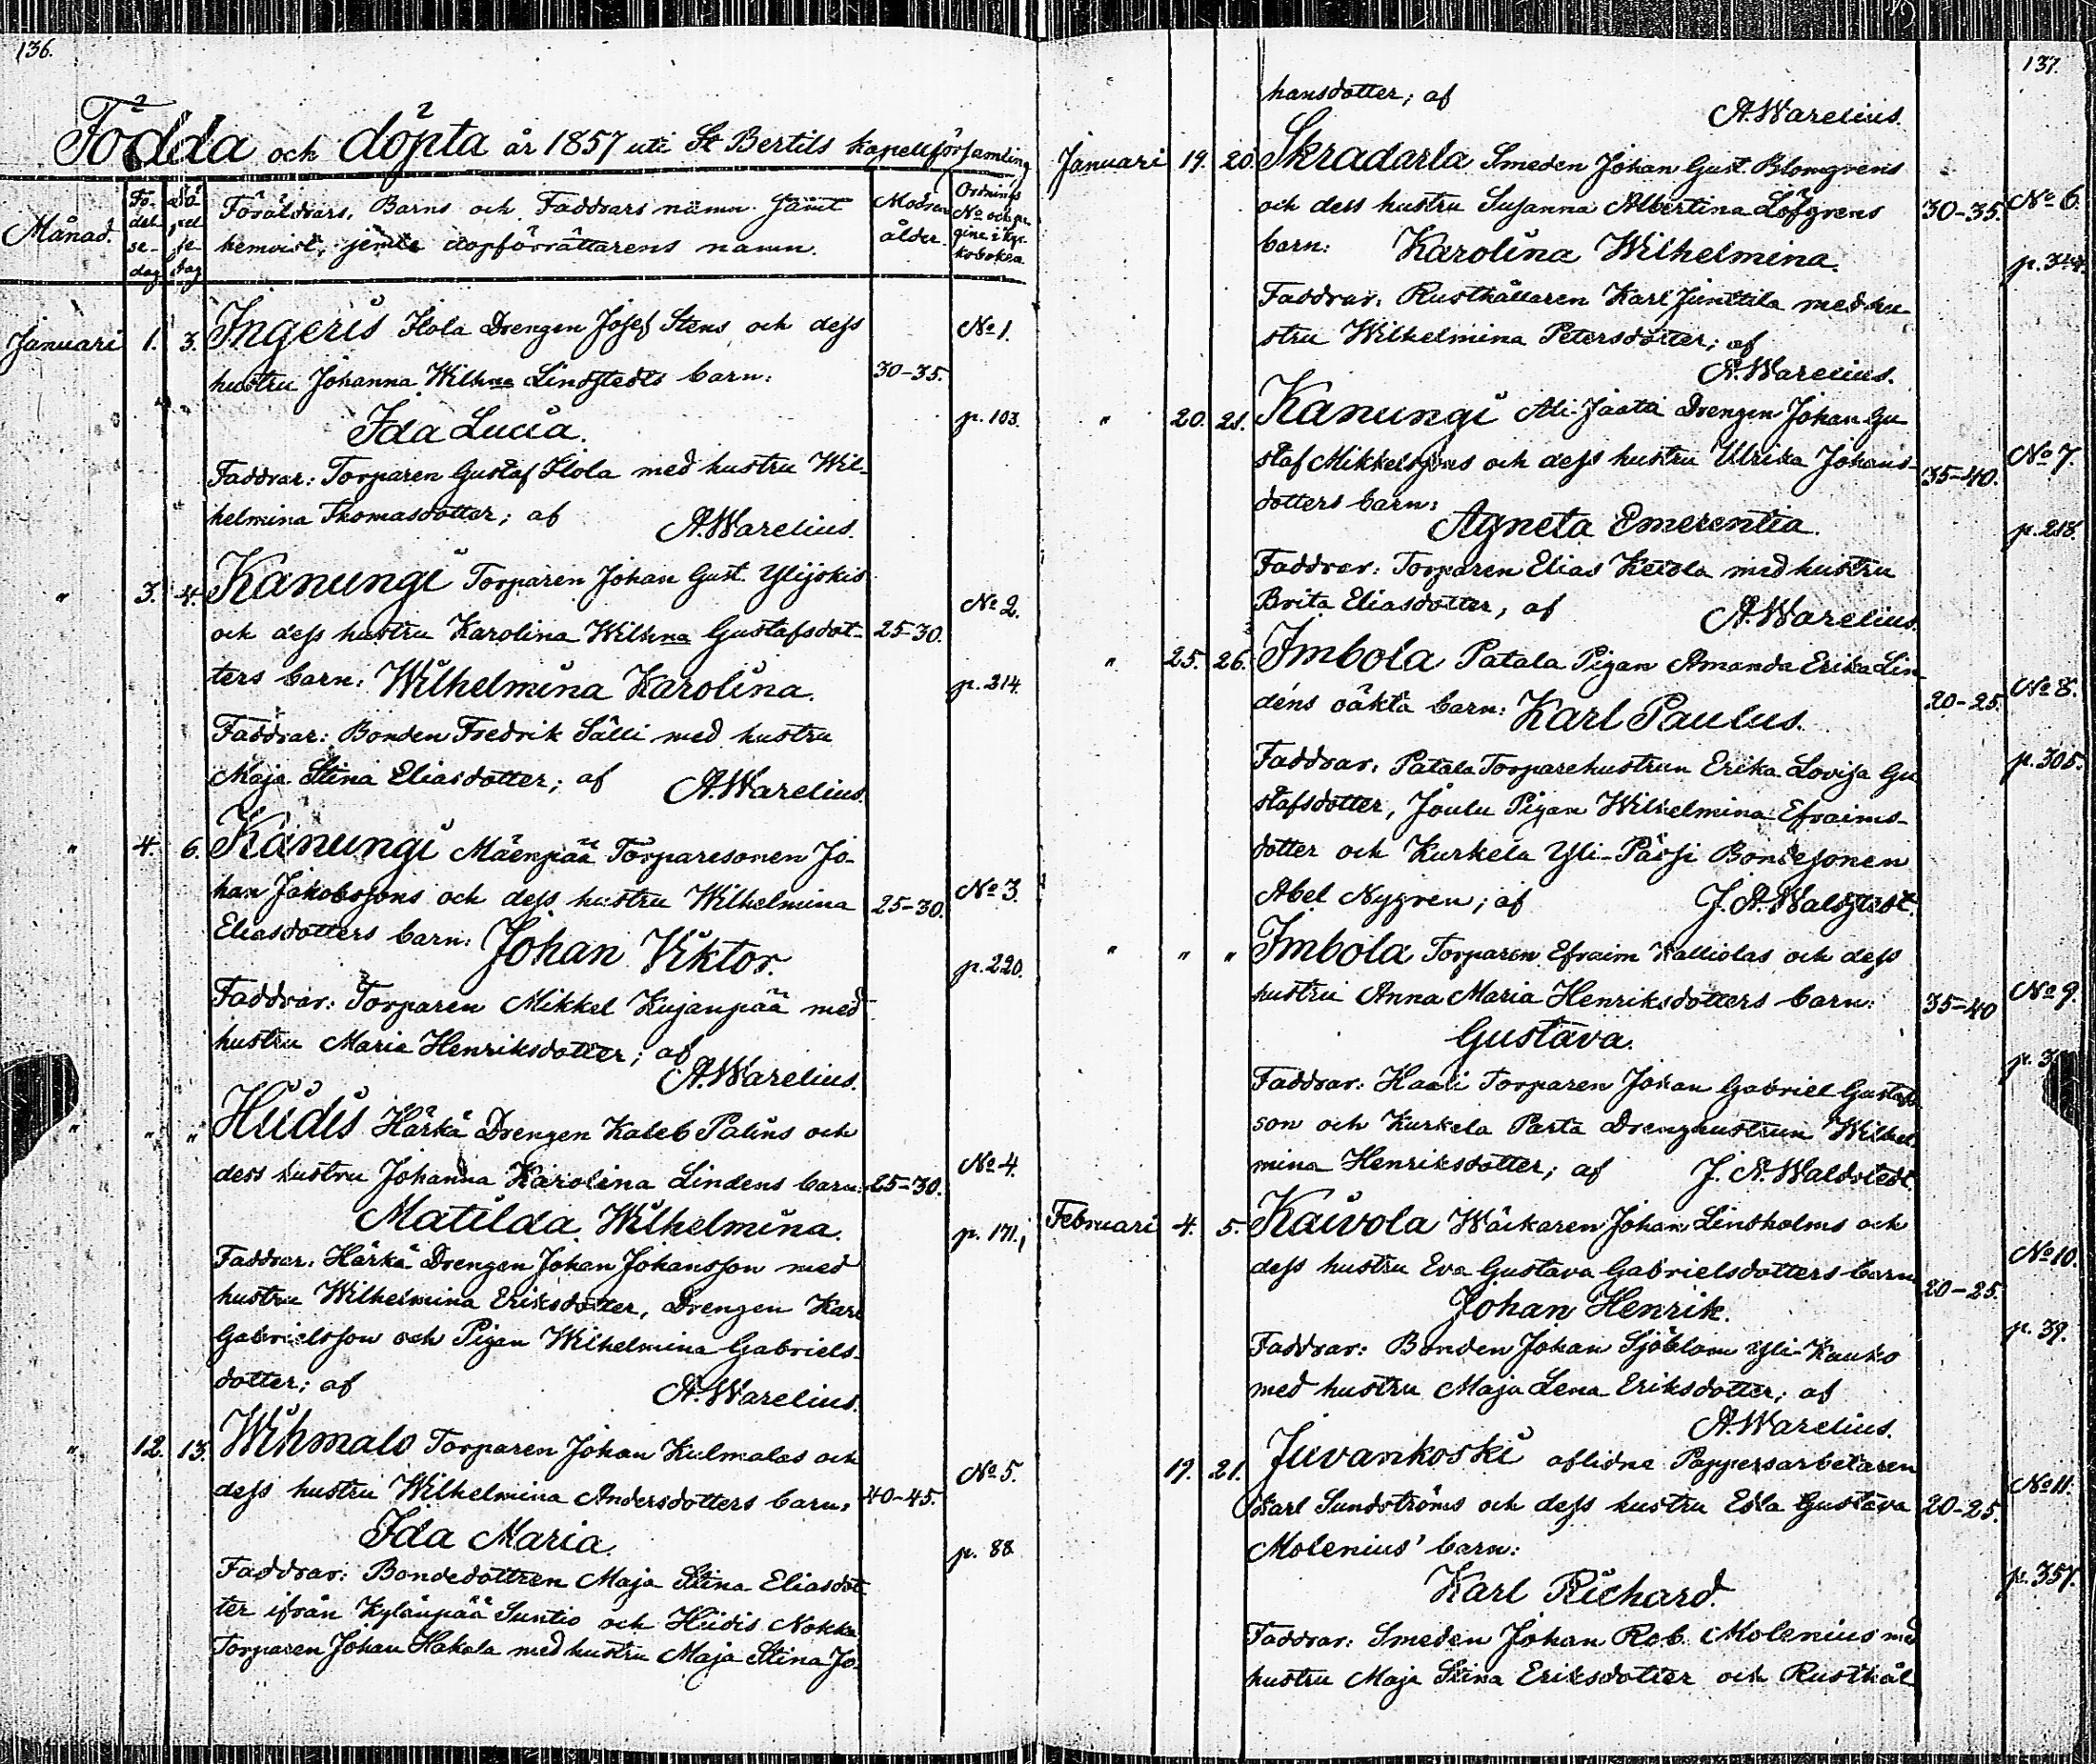 136.
Födda och döpta år 1857 uti St Bertils kapellförsamling
Månad.
Fö-
del-
se-
dag
Dö
pel
se
dag
Föräldrars, Barns och Faddrars namn samt
hemvist, jemte dopförrättarens namn.
Modrens
ålder.
Ordnings
No och pa-
gina i Kyr-
koboken
Januari 1. 3. Ingeris Ilola Drengen Josef Stens och dess
No 1.
hustru Johanna Wilhna Lindstedts barn:
30-35.
Ida Lucia.
p. 103.
Faddrar: Torparen Gustaf Ilola med hustru Wil-
helmina Thomasdotter; af A. Warelius.
" 3. 4. Kanungi Torparen Johan Gust. Ylijokis
No 2.
och dess hustru Karolina Wilhna Gustafsdot-
25-30.
ters barn: Wilhelmina Karolina.
p. 214.
Faddrar: Bonden Fredrik Sälli med hustru
Maja Stina Eliasdotter; af A. Warelius.
" 4. 6. Kanungi Mäenpää Torparesonen Jo-
han Jakobssons och dess hustru Wilhelmina
25-30.
No 3.
Eliasdotters barn: Johan Viktor.
p. 220.
Faddrar: Torparen Mikkel Kujanpää med
hustru Maria Henriksdotter; af
A. Warelius.
" " " Hiidis Härkä Drengen Kaleb Palins och
dess hustru Johanna Karolina Lindens barn:
25-30.
No 4.
Matilda Wilhelmina.
p. 171.
Faddrar: Härkä Drengen Johan Johansson med
hustru Wilhelmina Eriksdotter, Drengen Karl
Gabrielsson och Pigan Wilhelmina Gabriels-
dotter; af A. Warelius.
" 12. 13. Wihmalo Torparen Johan Kulmalas och
No 5.
dess hustru Wilhelmina Andersdotters barn:
40-45.
Ida Maria.
p. 88
Faddrar: Bondedottren Maja Stina Eliasdot-
ter ifrån Kylänpää Suntio och Hiidis Nokka
Torparen Johan Hakala med hustru Maja Stina Jo-
137.
hansdotter; af
A. Warelius.
Januari 19. 20. Skradarla Smeden Johan Gust. Blomgrens
och dess hustru Susanna Albertina Löfgrens
30-35.
No 6.
barn: Karolina Wilhelmina.
p. 344.
Faddrar: Rusthållaren Karl Junttila med hu-
stru Wilhelmina Petersdotter; af
A. Warelius.
" 20. 21. Kanungi Ali-Jaata Drengen Johan Gu-
staf Mikkelssons och dess hustru Ulrika Johans-
35-40.
No 7.
dotters barn:
Agneta Emerentia.
p. 218.
Faddrar: Torparen Elias Ketola med hustru
Brita Eliasdotter, af A. Warelius.
" 25. 26. Imbola Patala Pigan Amanda Erika Lin-
déns oäkta barn: Karl Paulus.
20-25.
No 8.
Faddrar: Patala Torparehustrun Erika Lovisa Gu
p. 305.
stafsdotter, Joulu Pigan Wilhelmina Efraims-
dotter och Kurkela Yli-Pärssi Bondesonen
Abel Nygren; af J. A. Waldstedt.
" " " Imbola Torparen Efraim Kalliolas och dess
hustru Anna Maria Henriksdotters barn:
35-40
No 9.
Gustava.
p. 3
Faddrar: Haali Torparen Johan Gabriel Gustafs
son och Kurkela Parta Drenghustrun Wilhel
mina Henriksdotter; af J. A. Waldstedt.
Februari 4. 5. Kaivola Wäckaren Johan Lindholms och
dess hustru Eva Gustava Gabrielsdotters barn
20-25.
No 10.
Johan Henrik.
p. 39.
Faddrar: Bonden Johan Sjöblom Yli-Kauko
med hustru Maja Lena Eriksdotter; af
A. Warelius.
19. 21. Juvankoski aflidne Pappersarbetaren
Karl Sundströms och dess hustru Edla Gustava
20-25.
No 11.
Molenius' barn:
Karl Richard.
p. 357.
Faddrar: Smeden Johan Rob. Molenius med
hustru Maja Stina Eriksdotter och Rusthål